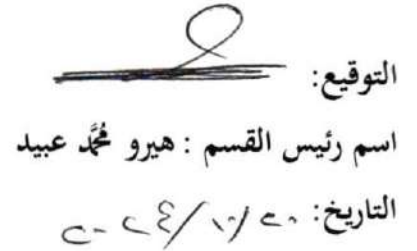 التوقيع:
اسم رئيس القسم : هيرو محمَّد عبيد
التاريخ: ٢٠/١٠/٢٠٢٤